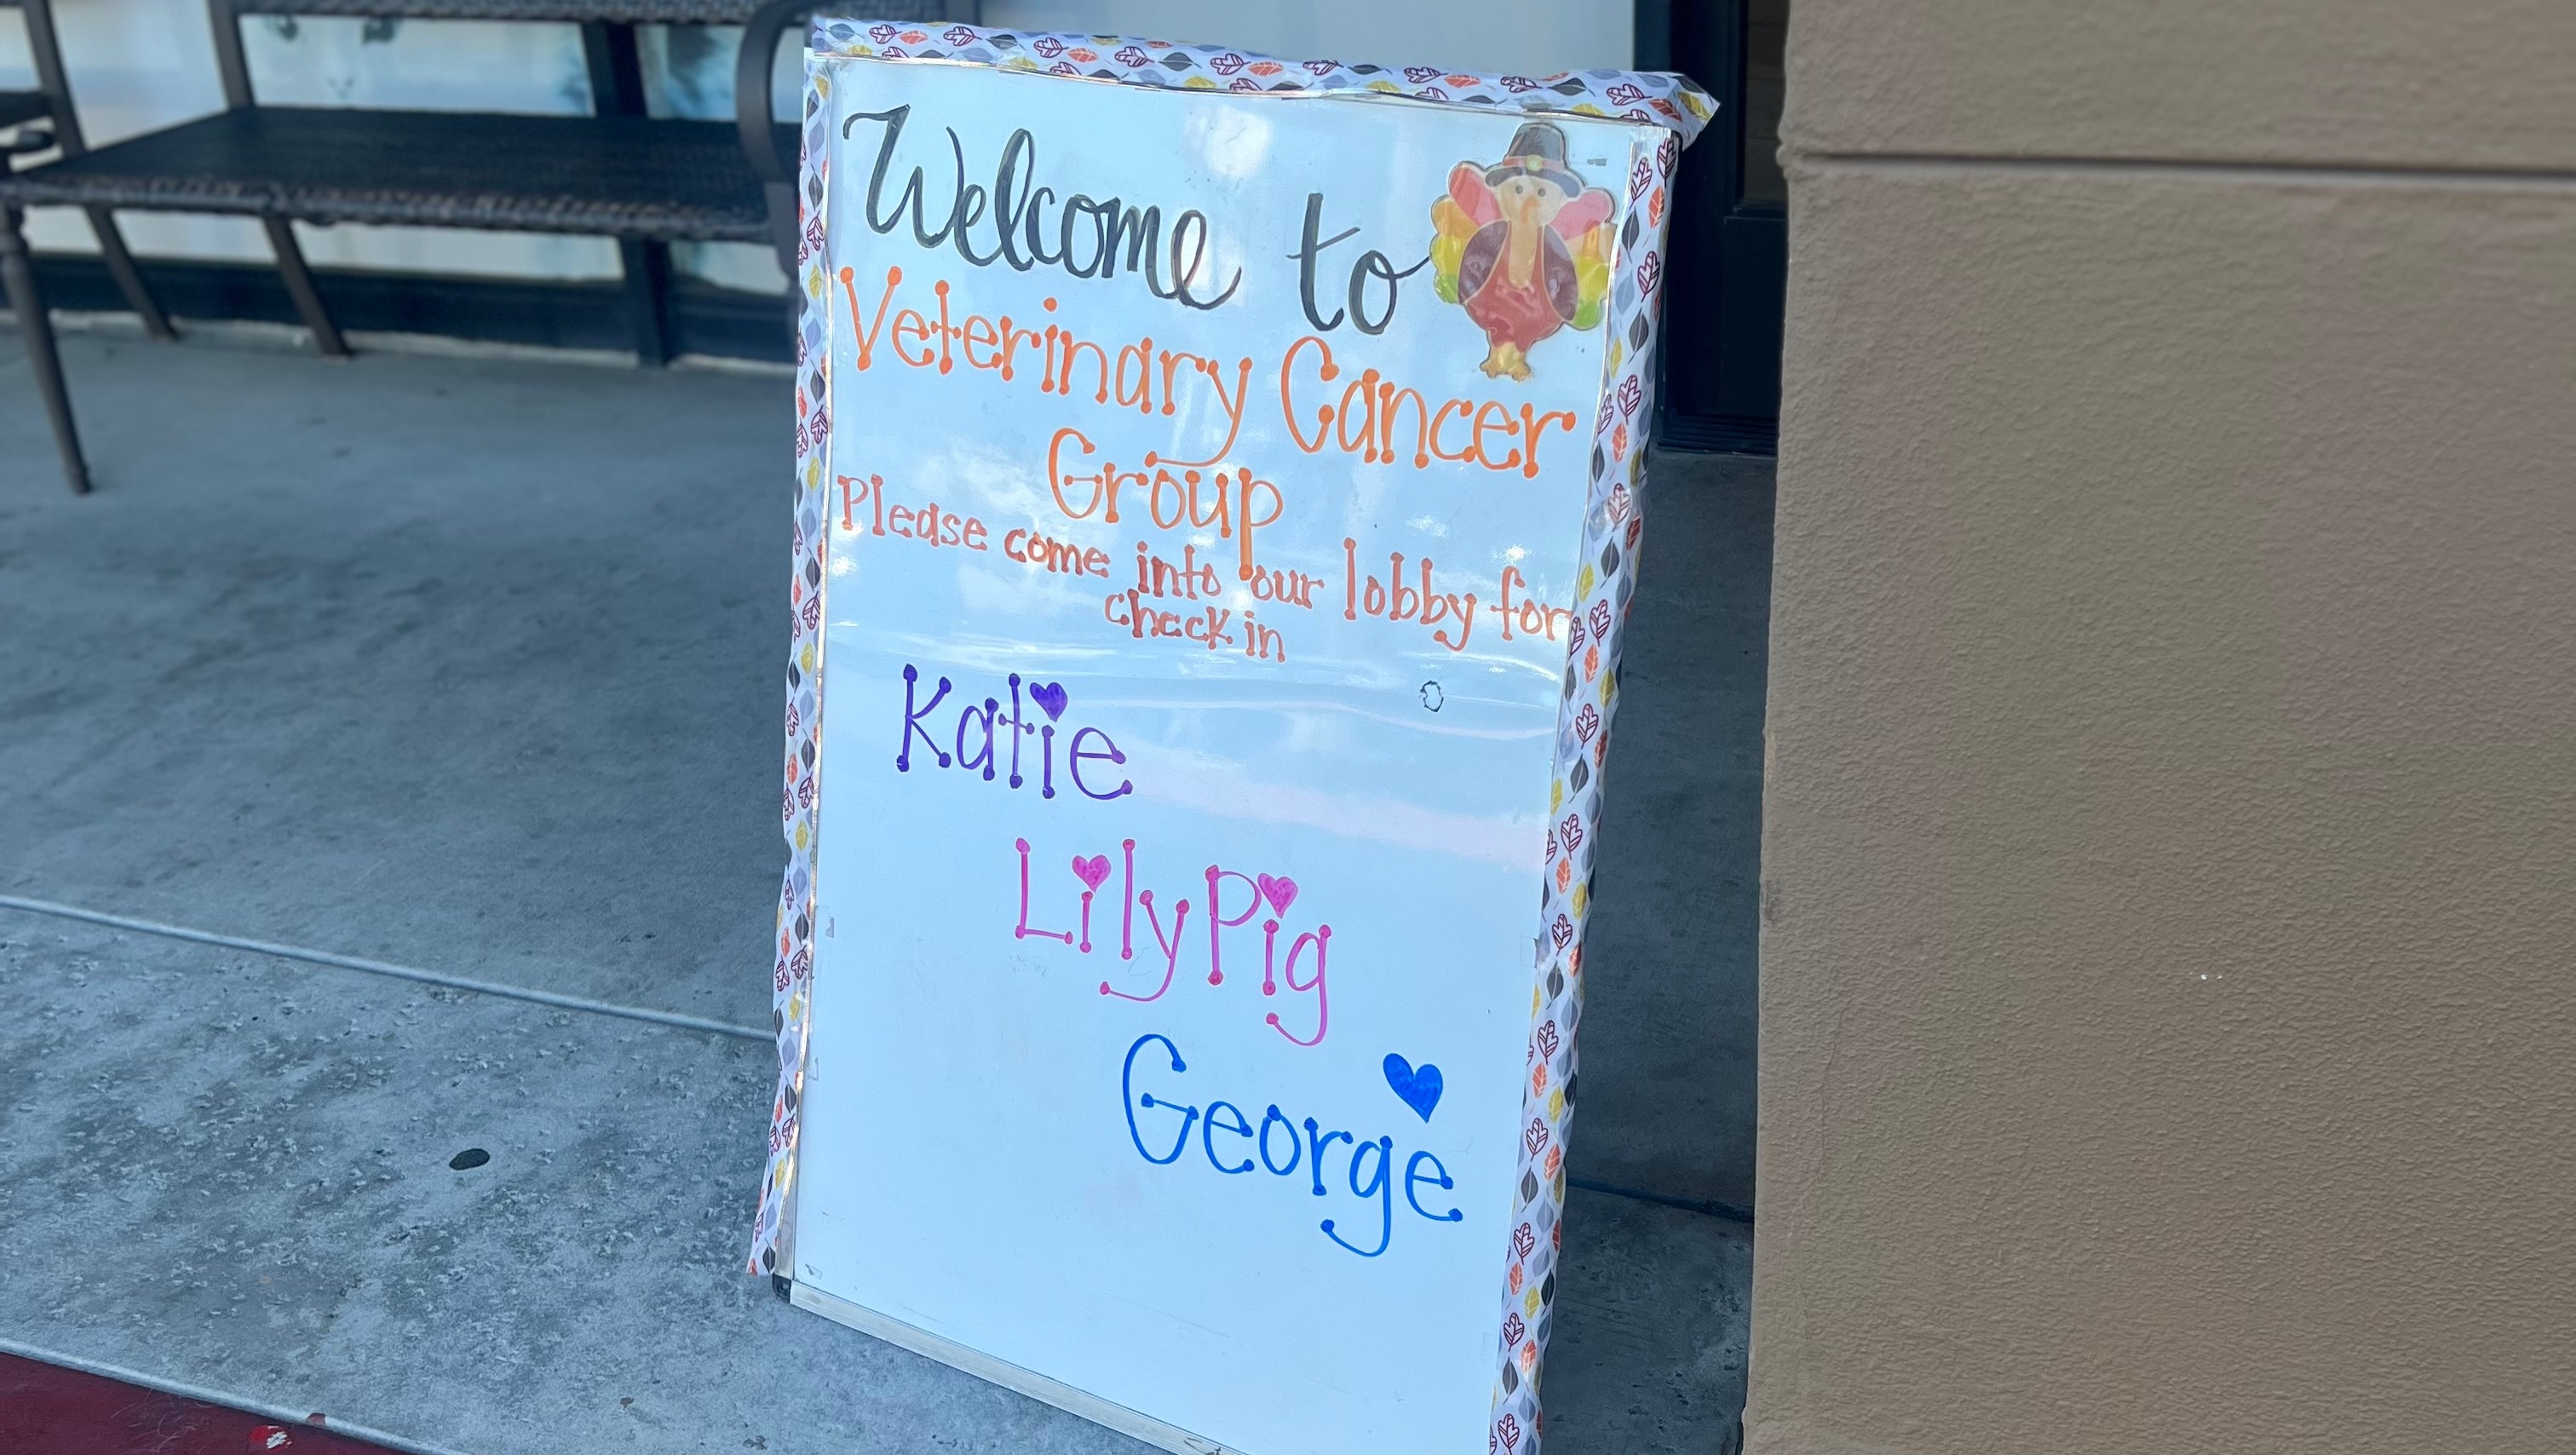 Welcome to
Veterinary Cancer
Group
Please come into our lobby for
check in
Katie
LilyPig
George